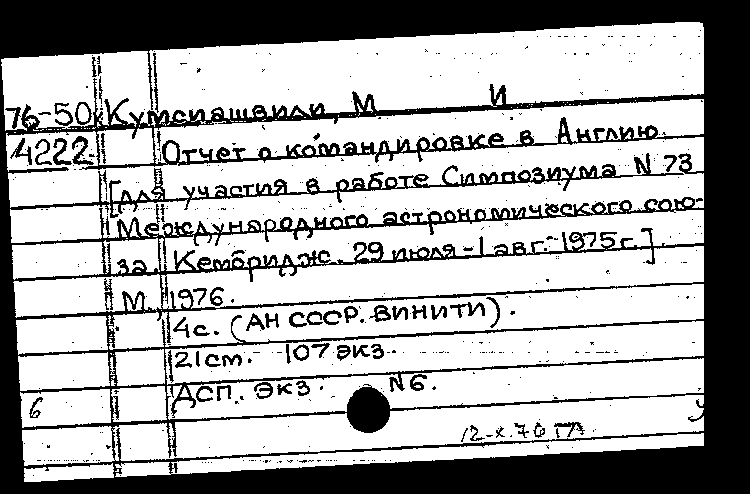 76-50 Кумсиашвили, М И
4222 Отчет о командировке в Англию.
[для участия в работе Симпозиума N 73
Международного астрономического сою-
за. Кембридж. 29 июля-1 авг. 1975 г.]
М., 1976.
4с. (АН СССР. ВИНИТИ).
21см. 107 экз.
ДСП. экз. N6.
6
12-X.76